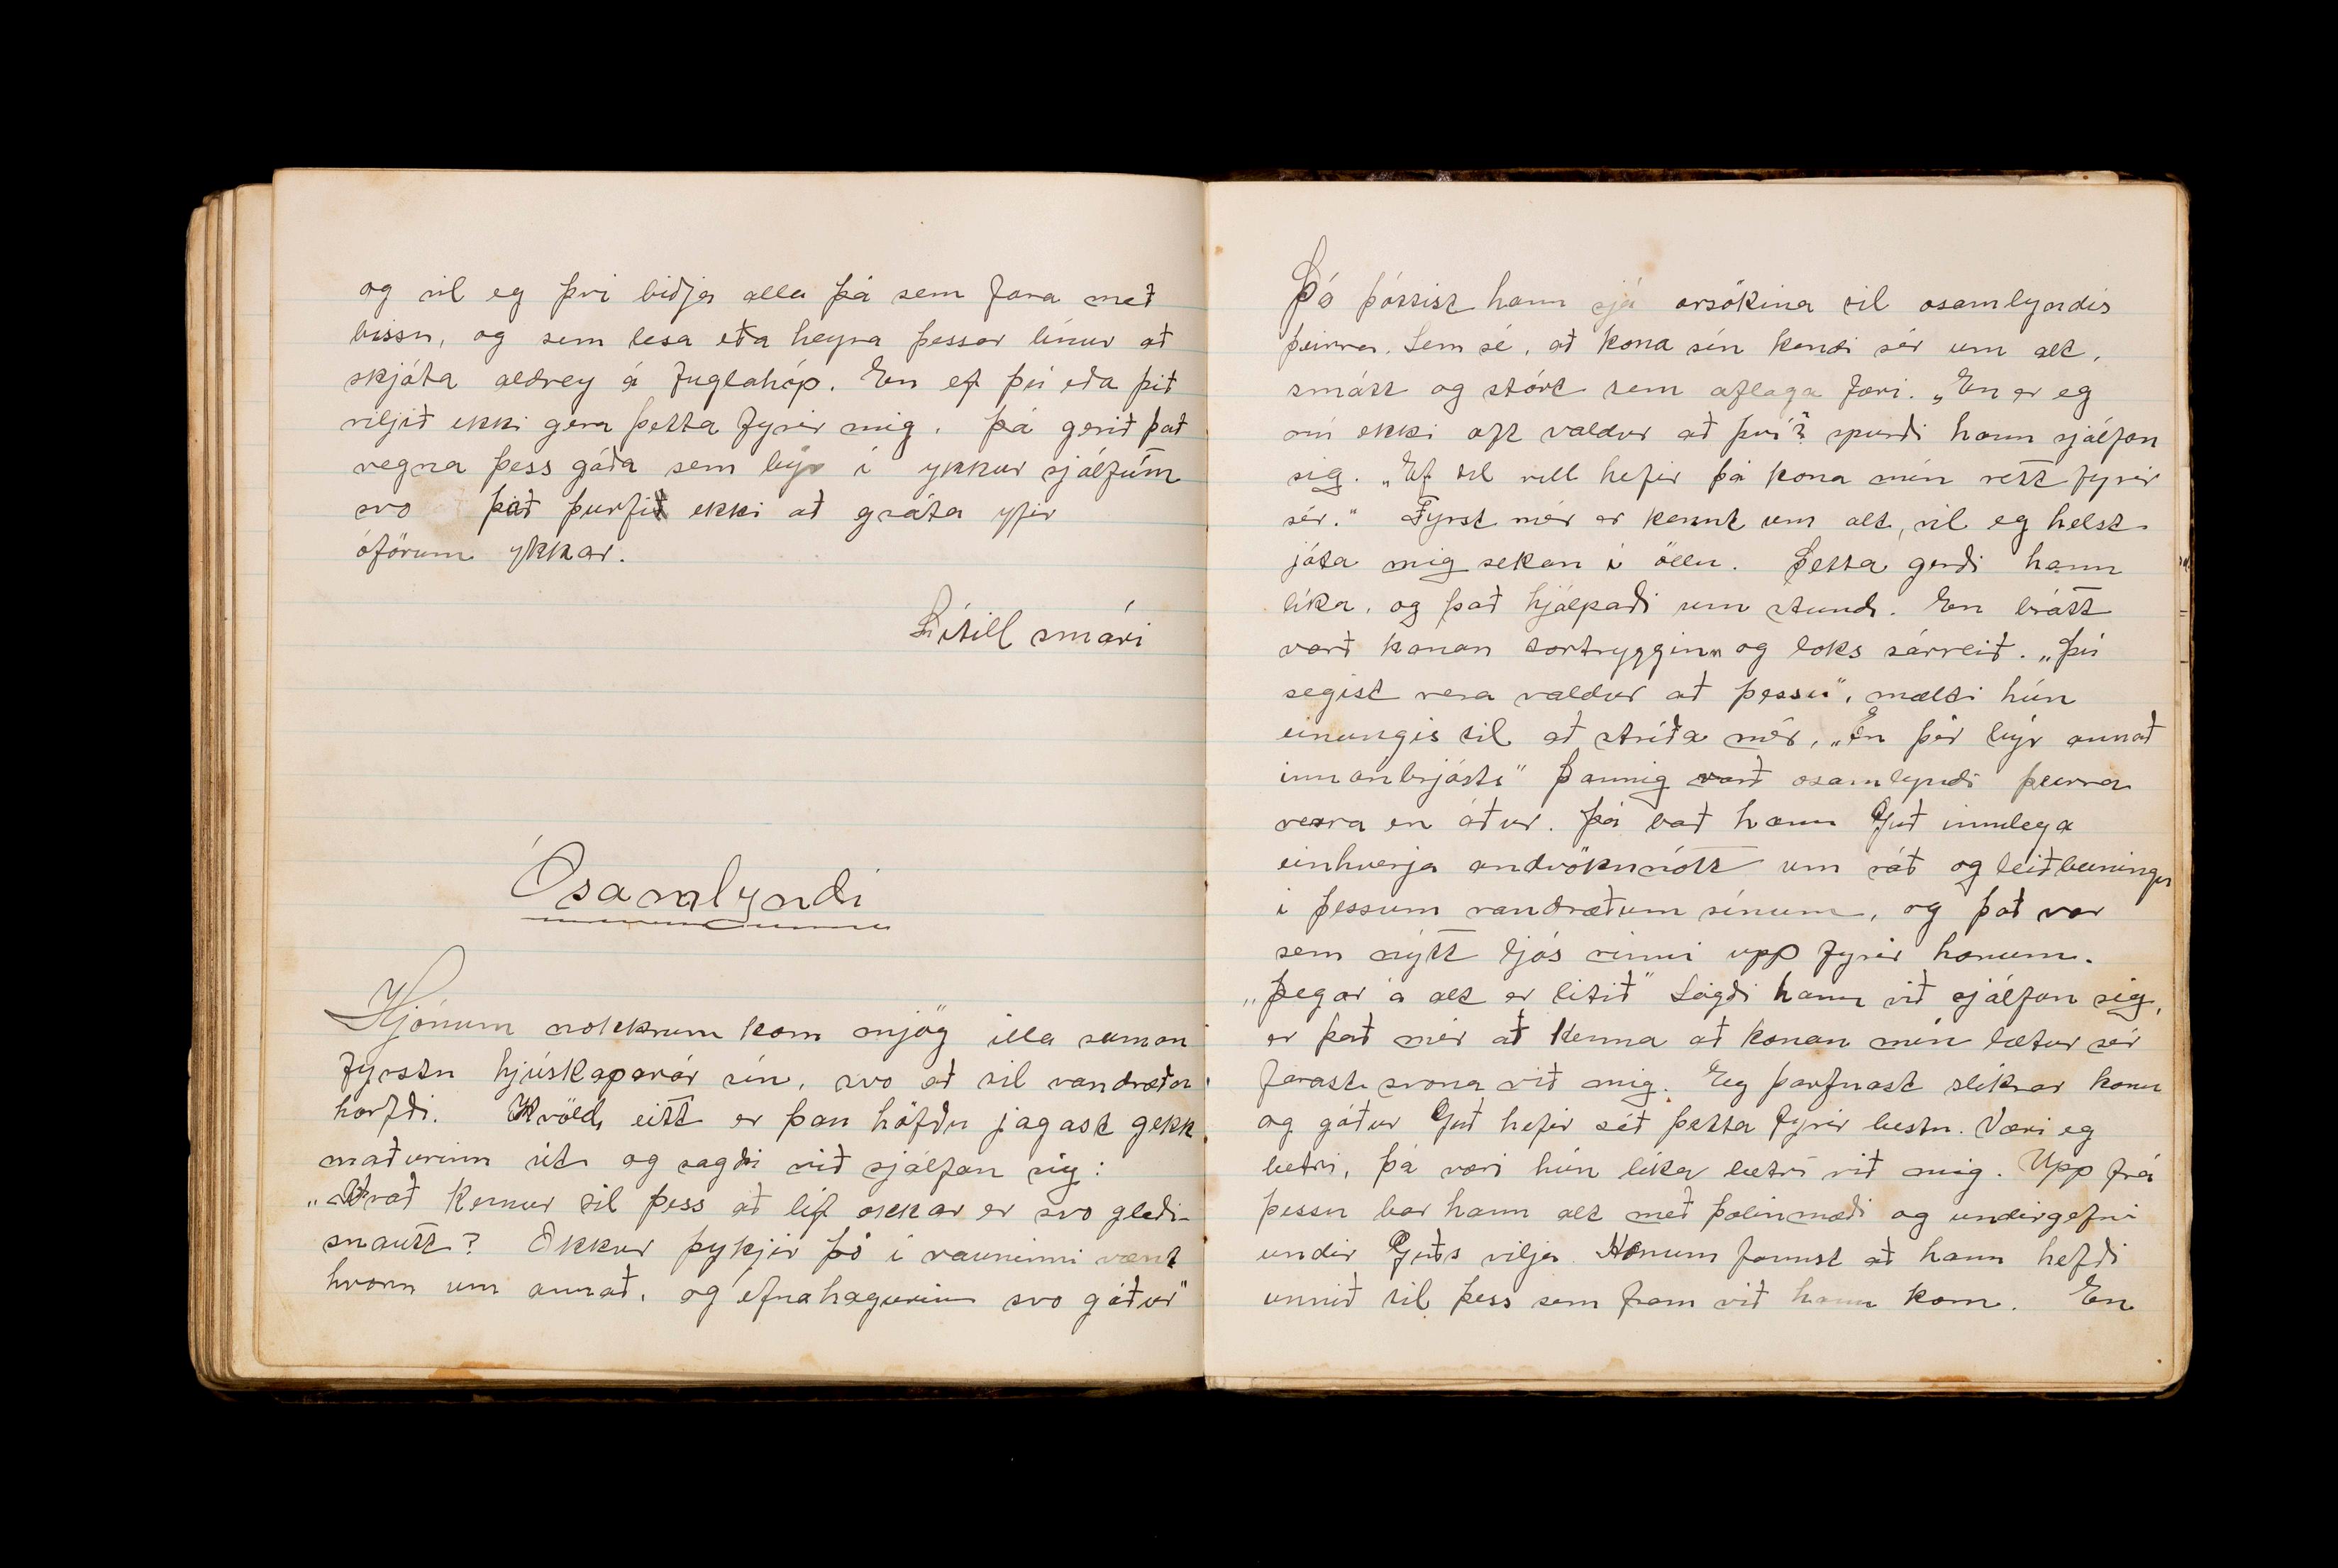 og vil eg því biðja alla þá sem fara með
bissu, og sem lesa eða heyra þessar línur að
skjóta aldrey á fuglahóp. En ef þú eða þið
viljið ekki gera þetta fyrir mig. þá gerið það
vegna þess góða sem býr í ykkur sjálfum
svo þið þurfið ekki að gráta yfir
óförum ykkar.
Lítill smári
Ósamlyndi
Hjónum nokkrum kom mjög illa saman
fyrstu hjúskaparár sín, svo að til vandræða
horfði. Kvöld eitt er þau höfðu jagast gekk
maðurinn út og sagði við sjálfan sig:
„Hvað kemur til þess að líf okkar er svo gleði-
snautt? Okkur þykjir þó í rauninni vænt
hvoru um annað, og efnahagurinn svo góður"
Þó þóttist hann sjá orsökina til osamlyndis
þeirra. Sem sé, að kona sín kendi sér um alt,
smátt og stórt sem aflaga færi. „En er eg
nú ekki oft valdur að því? spurði hann sjálfan
sig. „Ef til vill hefir þá kona mín rétt fyrir
sér." Fyrst mér er kennt um alt, vil eg helst
játa mig sekan í öllu. Þetta gerði hann
líka, og það hjálpaði um stund. En brátt
varð konan tortryggin og loks sárreið. „Þú
segist vera valdur að þessu", mælti hún
einungis til að stríða mér, „En þér býr annað
innanbrjósti" Þannig varð osamlyndi þeirra
verra en áður. Þá bað hann Guð innilega
einhverja andvökunótt um ráð og leiðbeiningu
í þessum vandræðum sínum, og það var
sem nýtt ljós rinni upp fyrir honum.
„Þegar á alt er litið" Sagði hann við sjálfan sig,
er það mér að kenna að konan mín lætur sér
farast svona við mig. Eg þarfnast slíkrar konu
og góður Guð hefir séð þetta fyrir bestu. Væri eg
betri, þá væri hún líka betri við mig. Upp frá
þessu bar hann alt með þolinmæði og undirgefni
undir Guðs vilja. Honum fannst að hann hefði
unnið til þess sem fram við hann kom. En